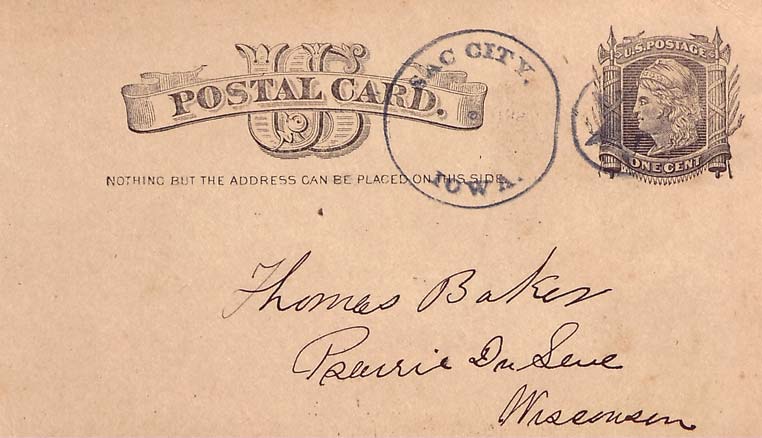 U.S. POSTAGE
US
POSTAL CARD.
SAC CITY.
IOWA.
ONE CENT
NOTHING BUT THE ADDRESS CAN BE PLACED ON THIS SIDE
Thomas Baker
Prairie Du Seue
Wisconsin